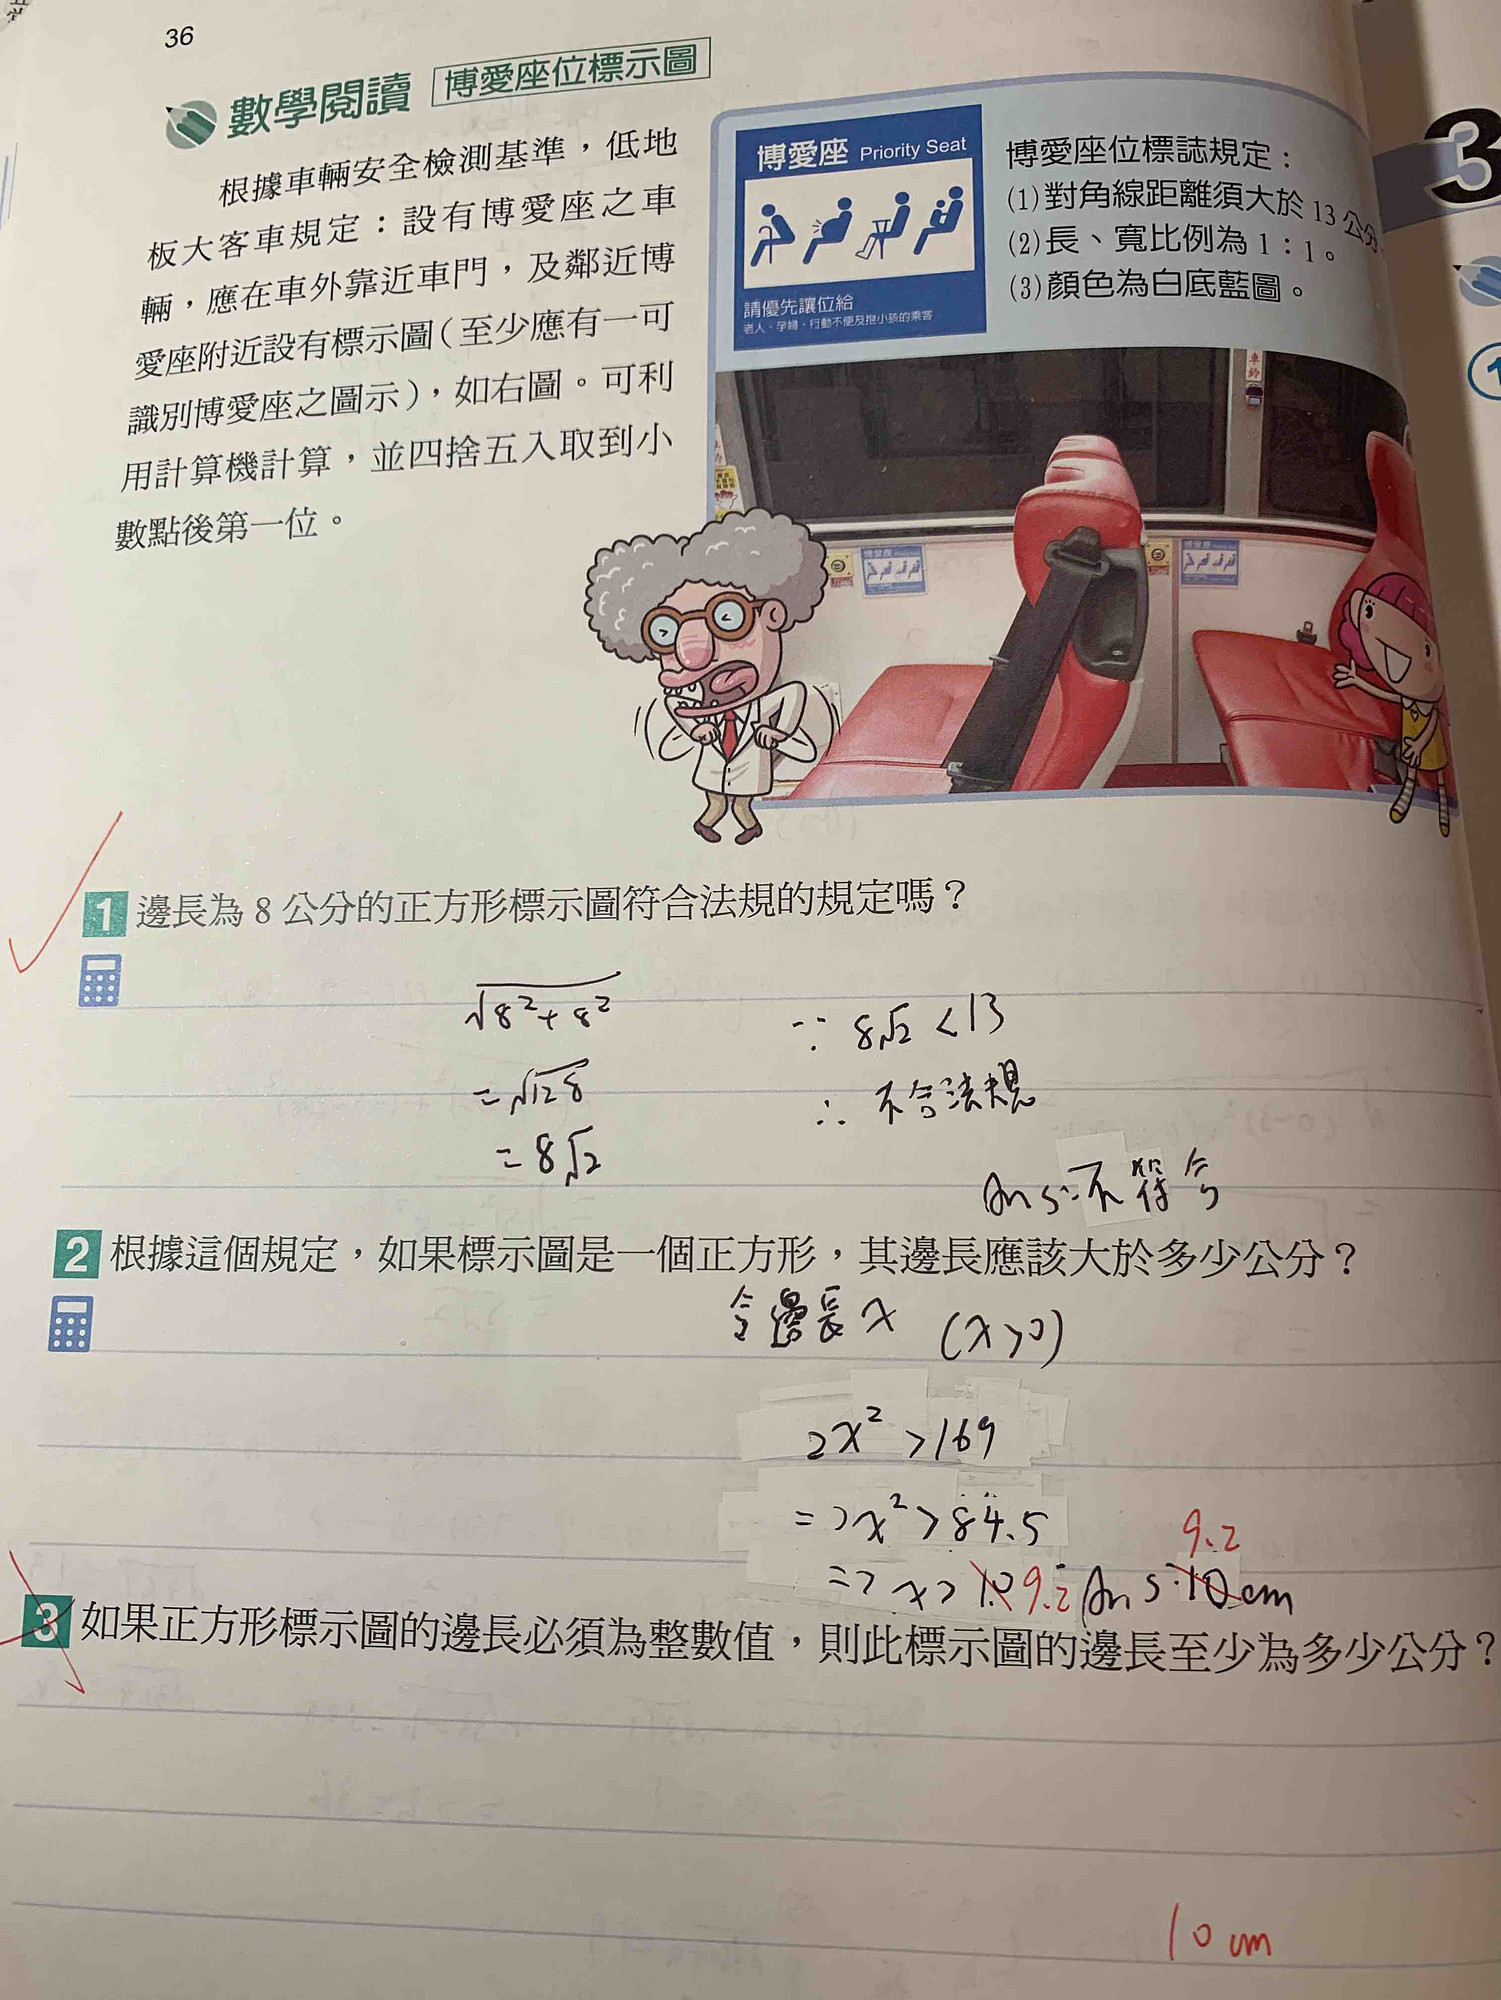 36
數學閱讀 博愛座位標示圖
根據車輛安全檢測基準，低地
板大客車規定：設有博愛座之車
輛，應在車外靠近車門，及鄰近博
愛座附近設有標示圖（至少應有一可
識別博愛座之圖示），如右圖。可利
用計算機計算，並四捨五入取到小
數點後第一位。
博愛座 Priority Seat
請優先讓位給
老人、孕婦、行動不便及抱小孩的乘客
博愛座位標誌規定：
(1)對角線距離須大於 13 公分
(2)長、寬比例為 1：1。
(3)顏色為白底藍圖。
車鈴
博愛座
博愛座
3
1
1 邊長為 8 公分的正方形標示圖符合法規的規定嗎？
√8²+8²
=√128
=8√2
∵ 8√2 <13
∴ 不合法規
Ans:不符合
2 根據這個規定，如果標示圖是一個正方形，其邊長應該大於多少公分？
令邊長x (x>0)
2x²>169
=>x²>84.5
=> x> 10 9.2 Ans:10cm
9.2
3 如果正方形標示圖的邊長必須為整數值，則此標示圖的邊長至少為多少公分？
10 cm